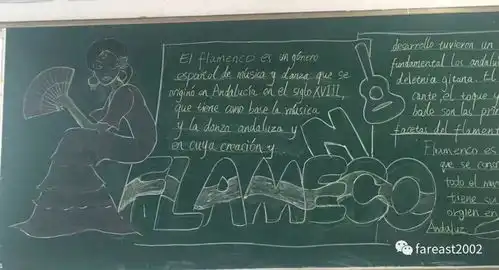 El flamenco es un género
español de música y danza que se
originó en Andalucía en el siglo XVIII,
que tiene como base la música
y la danza andaluza y
en cuya creación y
desarrollo tuvieron un
fundamental los andaluc
de etnia gitana. El
cante, el toque y
baile son las prin
facetas del flamen
Flamenco es
que se cons
todo el mu
tiene su
orgien en
Andaluz
FLAMENCO
fareast2002